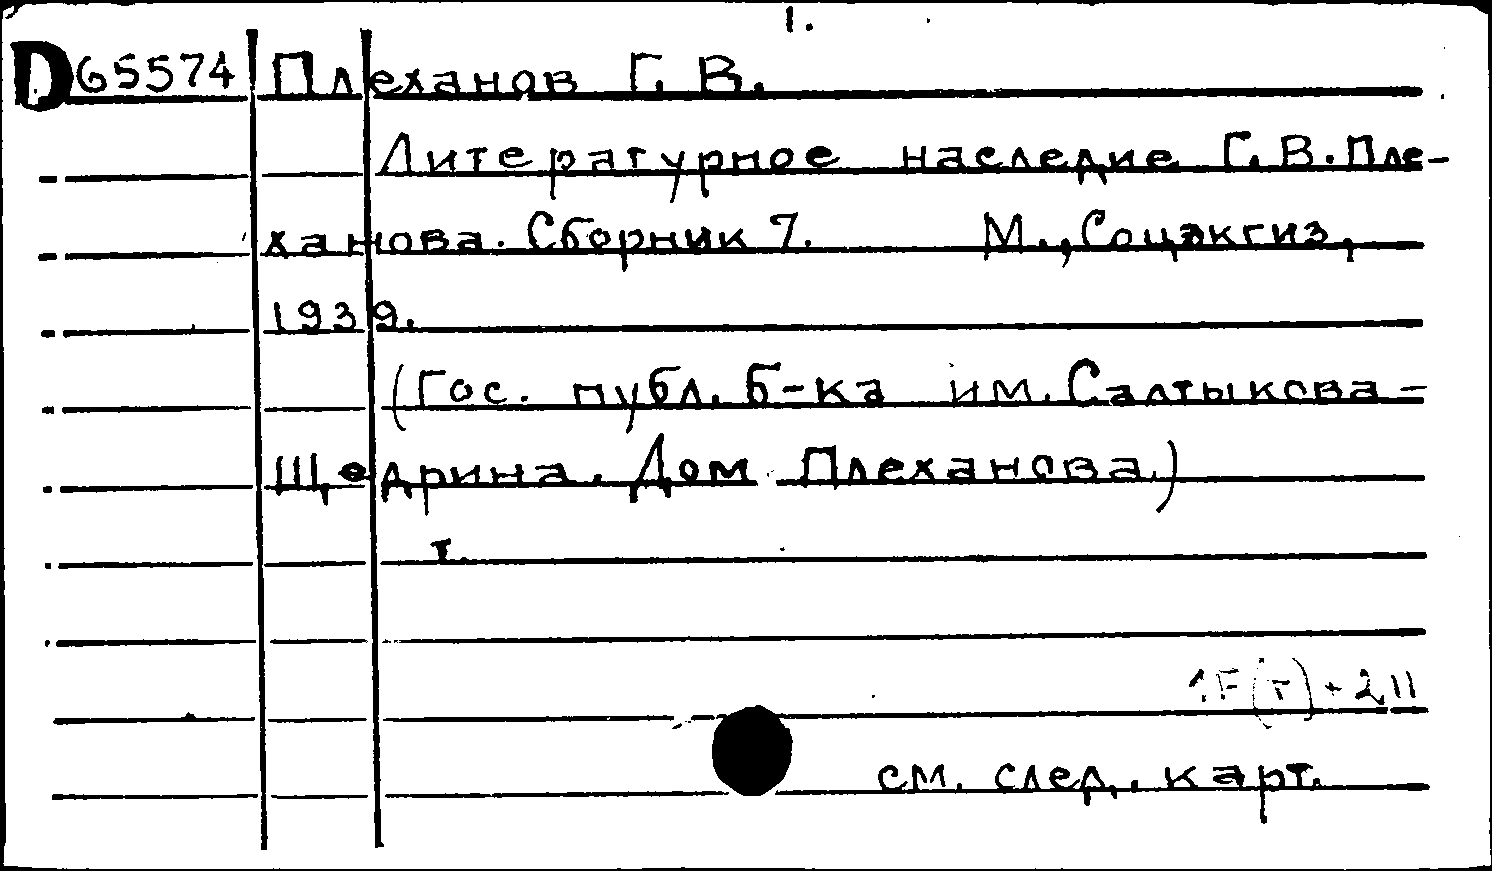 1.
D65574 Плеханов Г. В.
Литературное наследие Г. В. Пле-
ханова. Сборник 7. М., Соцэкгиз,
1939.
(Гос. публ. б-ка им. Салтыкова-
Щедрина. Дом Плеханова.)
т.
1F(т)+2 II
см. след. карт.